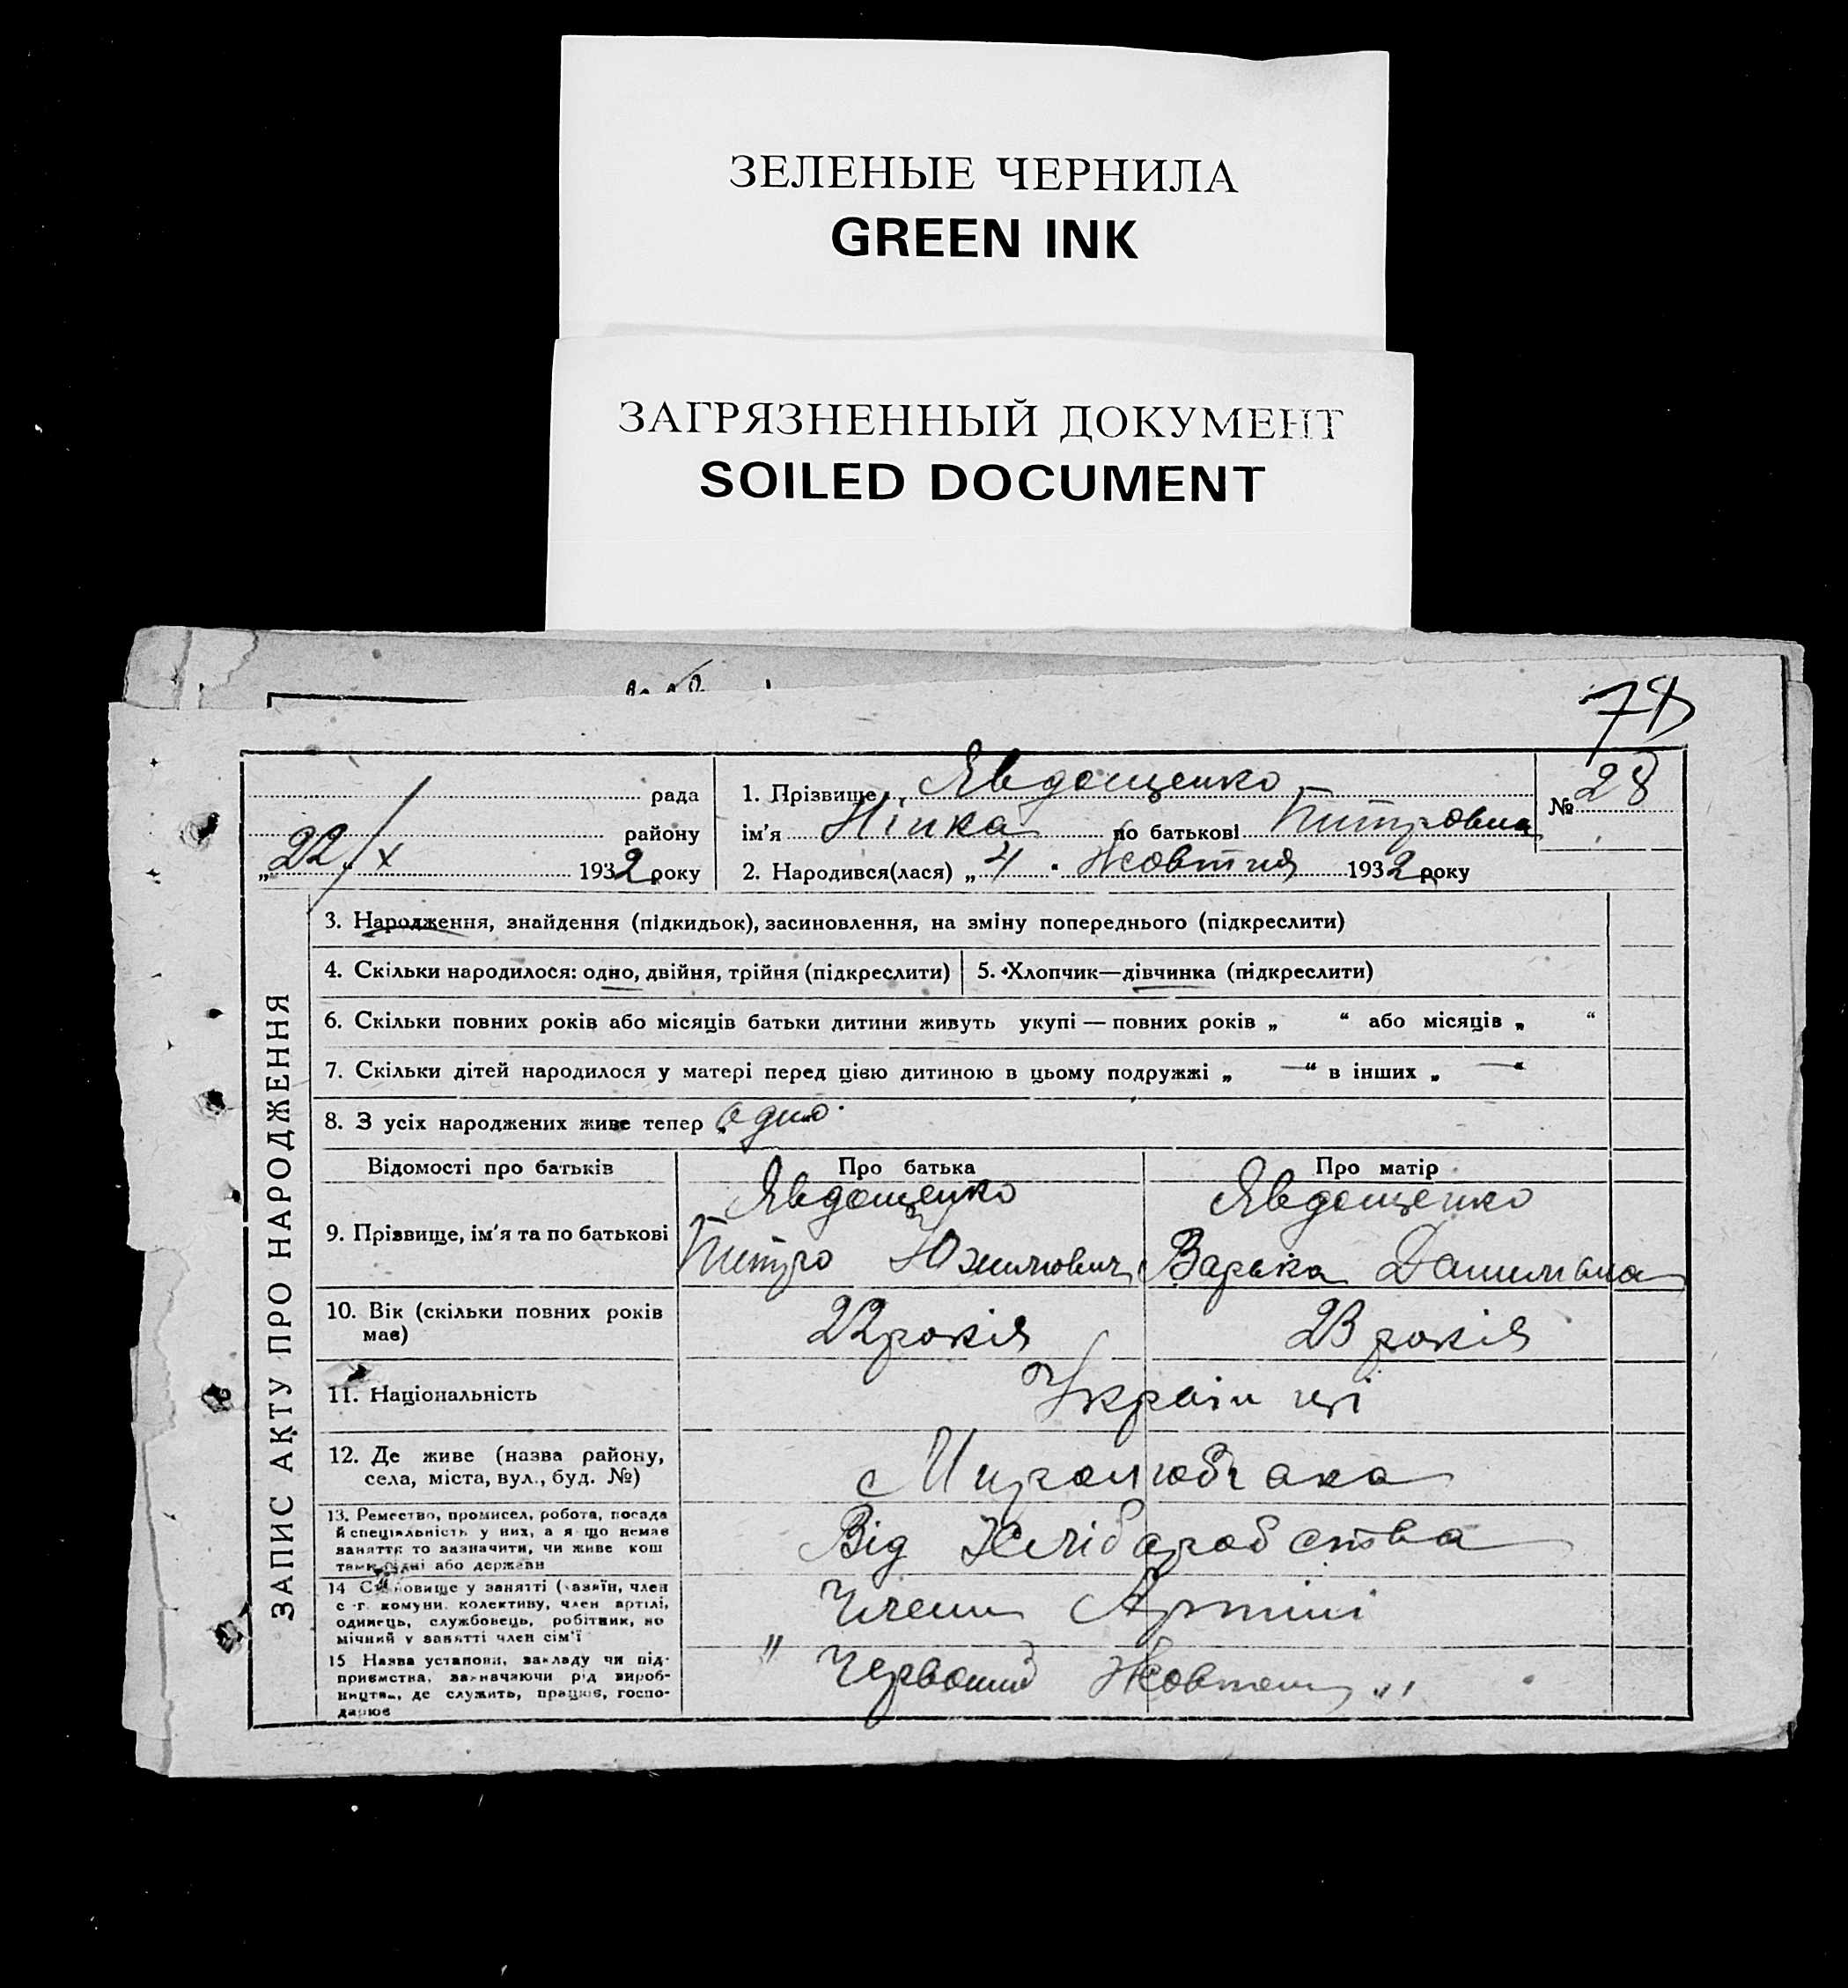 ЗЕЛЕНЫЕ ЧЕРНИЛА
GREEN INK
ЗАГРЯЗНЕННЫЙ ДОКУМЕНТ
SOILED DOCUMENT
78
рада
району
„22/X 1932 року
1. Прізвище Явдощенко
ім'я Нінка по батькові Питровна
2. Народився(лася) „4" Жовтня 1932 року
№ 28
ЗАПИС АКТУ ПРО НАРОДЖЕННЯ
3. Народження, знайдення (підкидьок), засиновлення, на зміну попереднього (підкреслити)
4. Скільки народилося: одно, двійня, трійня (підкреслити)
5. Хлопчик—дівчинка (підкреслити)
6. Скільки повних років або місяців батьки дитини живуть укупі — повних років „ “ або місяців „ “
7. Скільки дітей народилося у матері перед цією дитиною в цьому подружжі „ —“ в інших „ —“
8. З усіх народжених живе тепер „одно.
Відомості про батьків
Про батька
Про матір
9. Прізвище, ім'я та по батькові
Явдощенко
Питро
Явдощенко
Варька Данилівна
10. Вік (скільки повних років
має)
22 років
23 років
11. Національність
Українці
12. Де живе (назва району,
села, міста, вул., буд. №)
с Миролюбівка
13. Ремество, промисел, робота, посада
й спеціяльність у них, а якщо немає
заняття то зазначити, чи живе кош
або держави
Від Хлібаробства
14 Становище у занятті (хазяїн, член
с.-г. комуни, колективу, член артілі,
одинець, службовець, робітник, по
мічний у занятті член сім'ї
Члени Артілі
15 Назва установи, закладу чи під-
приємства, зазначаючи рід вироб-
ництва, де служить, працює, госпо-
дарює
" Червоний Жовтень "